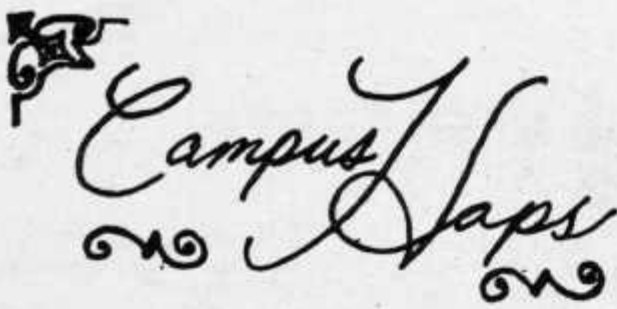 Campus Haps